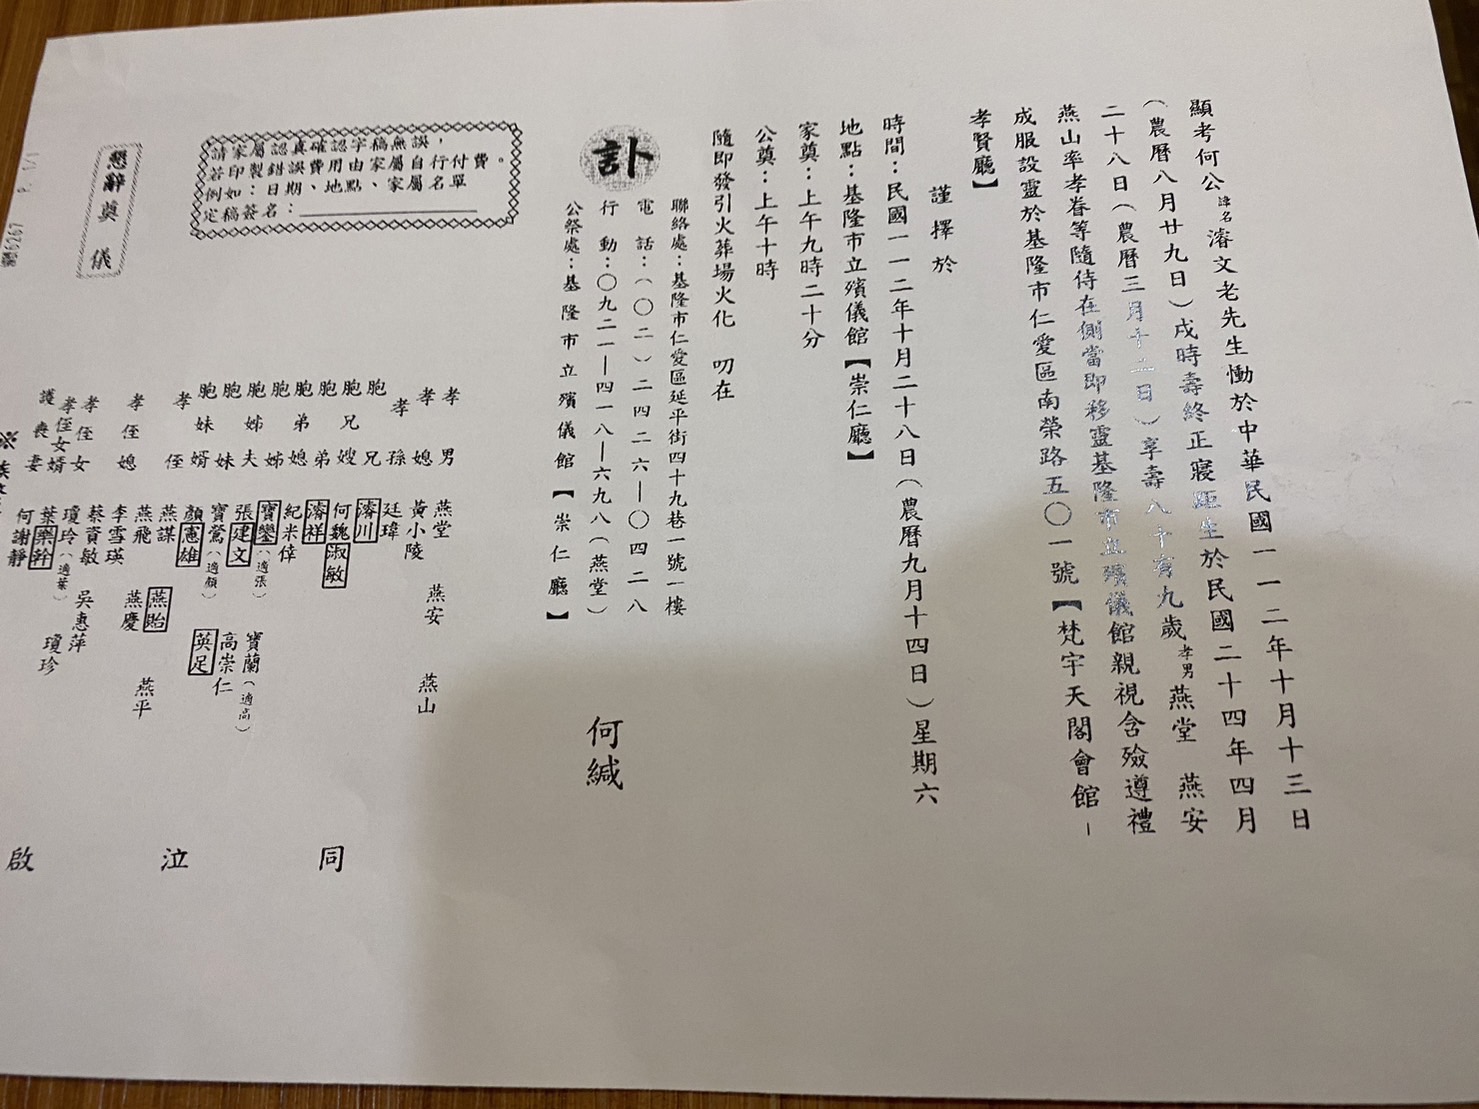 顯考何公諱名濬文老先生慟於中華民國一一二年十月十三日
(農曆八月廿九日)戌時壽終正寢距生於民國二十四年四月
二十八日(農曆三月十二日)享壽八十有九歲孝男燕堂 燕安
燕山率孝眷等隨侍在側當即移靈基隆市立殯儀館親視含殮遵禮
成服設靈於基隆市仁愛區南榮路五〇一號【梵宇天閣會館-
孝賢廳】
謹擇於
時間:民國一一二年十月二十八日(農曆九月十四日)星期六
地點:基隆市立殯儀館【崇仁廳】
家奠:上午九時二十分
公奠:上午十時
隨即發引火葬場火化 叨在
聯絡處:基隆市仁愛區延平街四十九巷一號一樓
電 話:(〇二)二四二六-〇四二八
行 動:〇九二一-四一八-六九八(燕堂)
公祭處:基隆市立殯儀館【崇仁廳】
訃
何緘
孝男 燕堂 燕安 燕山
孝媳 黃小陵
孝孫 廷瑋
胞兄 濬川
胞兄嫂 何魏淑敏
胞弟 濬祥
胞弟媳 紀米倖
胞姊 寶鑾(適張) 寶蘭(適高)
胞姊夫 張建文 高崇仁
胞妹 寶鶯(適顏) 英足
胞妹婿 顏憲雄
孝侄 燕謀 燕貽 燕平
燕飛 燕慶
孝侄媳 李雪瑛
蔡資敏 吳惠萍
孝侄女 瓊玲(適葉) 瓊珍
孝侄女婿 葉樂幹
護喪妻 何謝靜
同 泣 啟
請家屬認真確認字稿無誤,
若印製錯誤費用由家屬自行付費。
例如:日期、地點、家屬名單
定稿簽名:
懇辭奠儀
P. 1/1